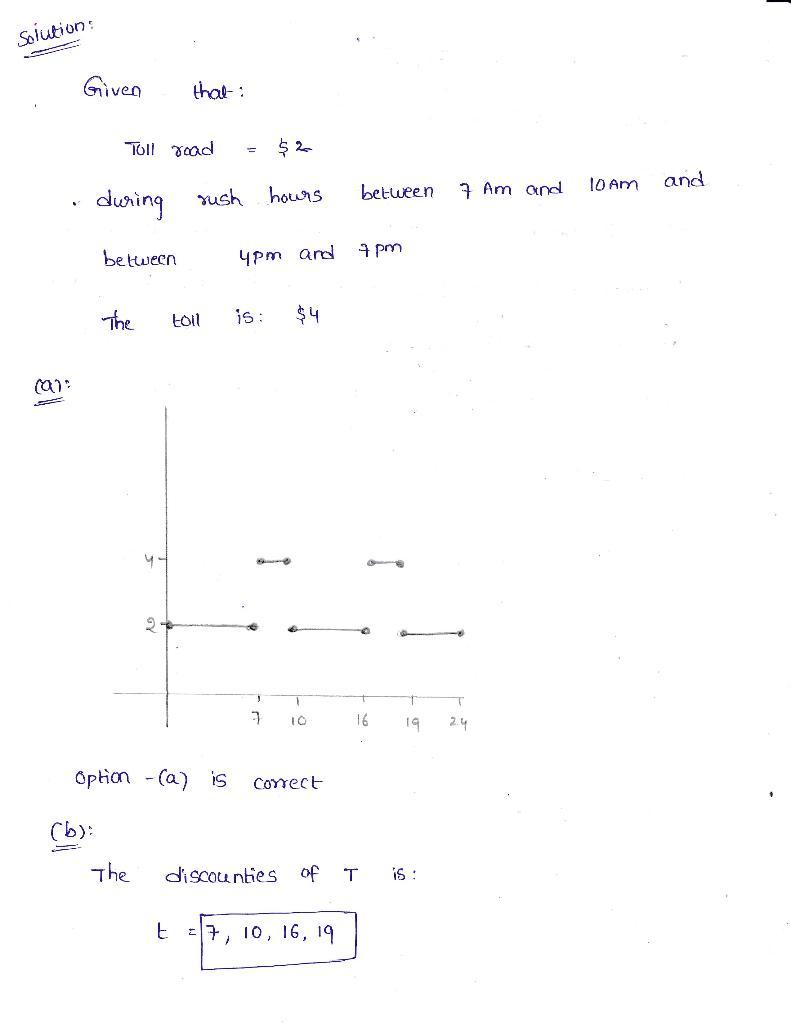 Solution:
Given that:
Toll road = $2
during rush hours between 7 Am and 10 Am and
between 4pm and 7pm
The toll is: $4
(a):
4
2
7 10 16 19 24
Option - (a) is correct
(b):
The discounties of T is:
t = 7, 10, 16, 19